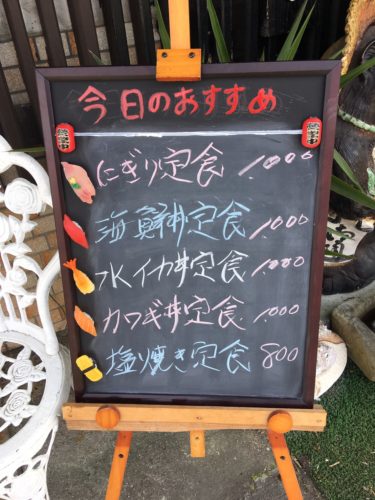 今日のおすすめ
にぎり定食 1,000
海鮮丼定食 1,000
水イカ丼定食 1,000
カワギ丼定食 1,000
塩焼き定食 800